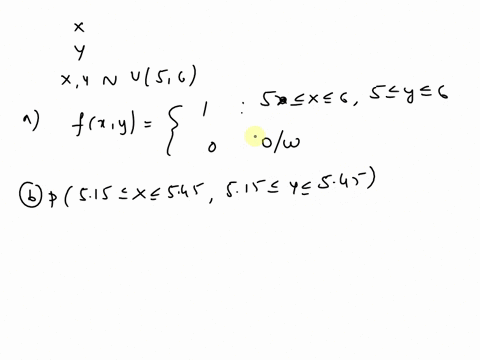 x
y
x,y ~ U(5,6)
a) f(x,y) = { 1 : 5 ≤ x ≤ 6, 5 ≤ y ≤ 6
0 o/w
(b) p(5.15 ≤ x ≤ 5.45, 5.15 ≤ y ≤ 5.45)